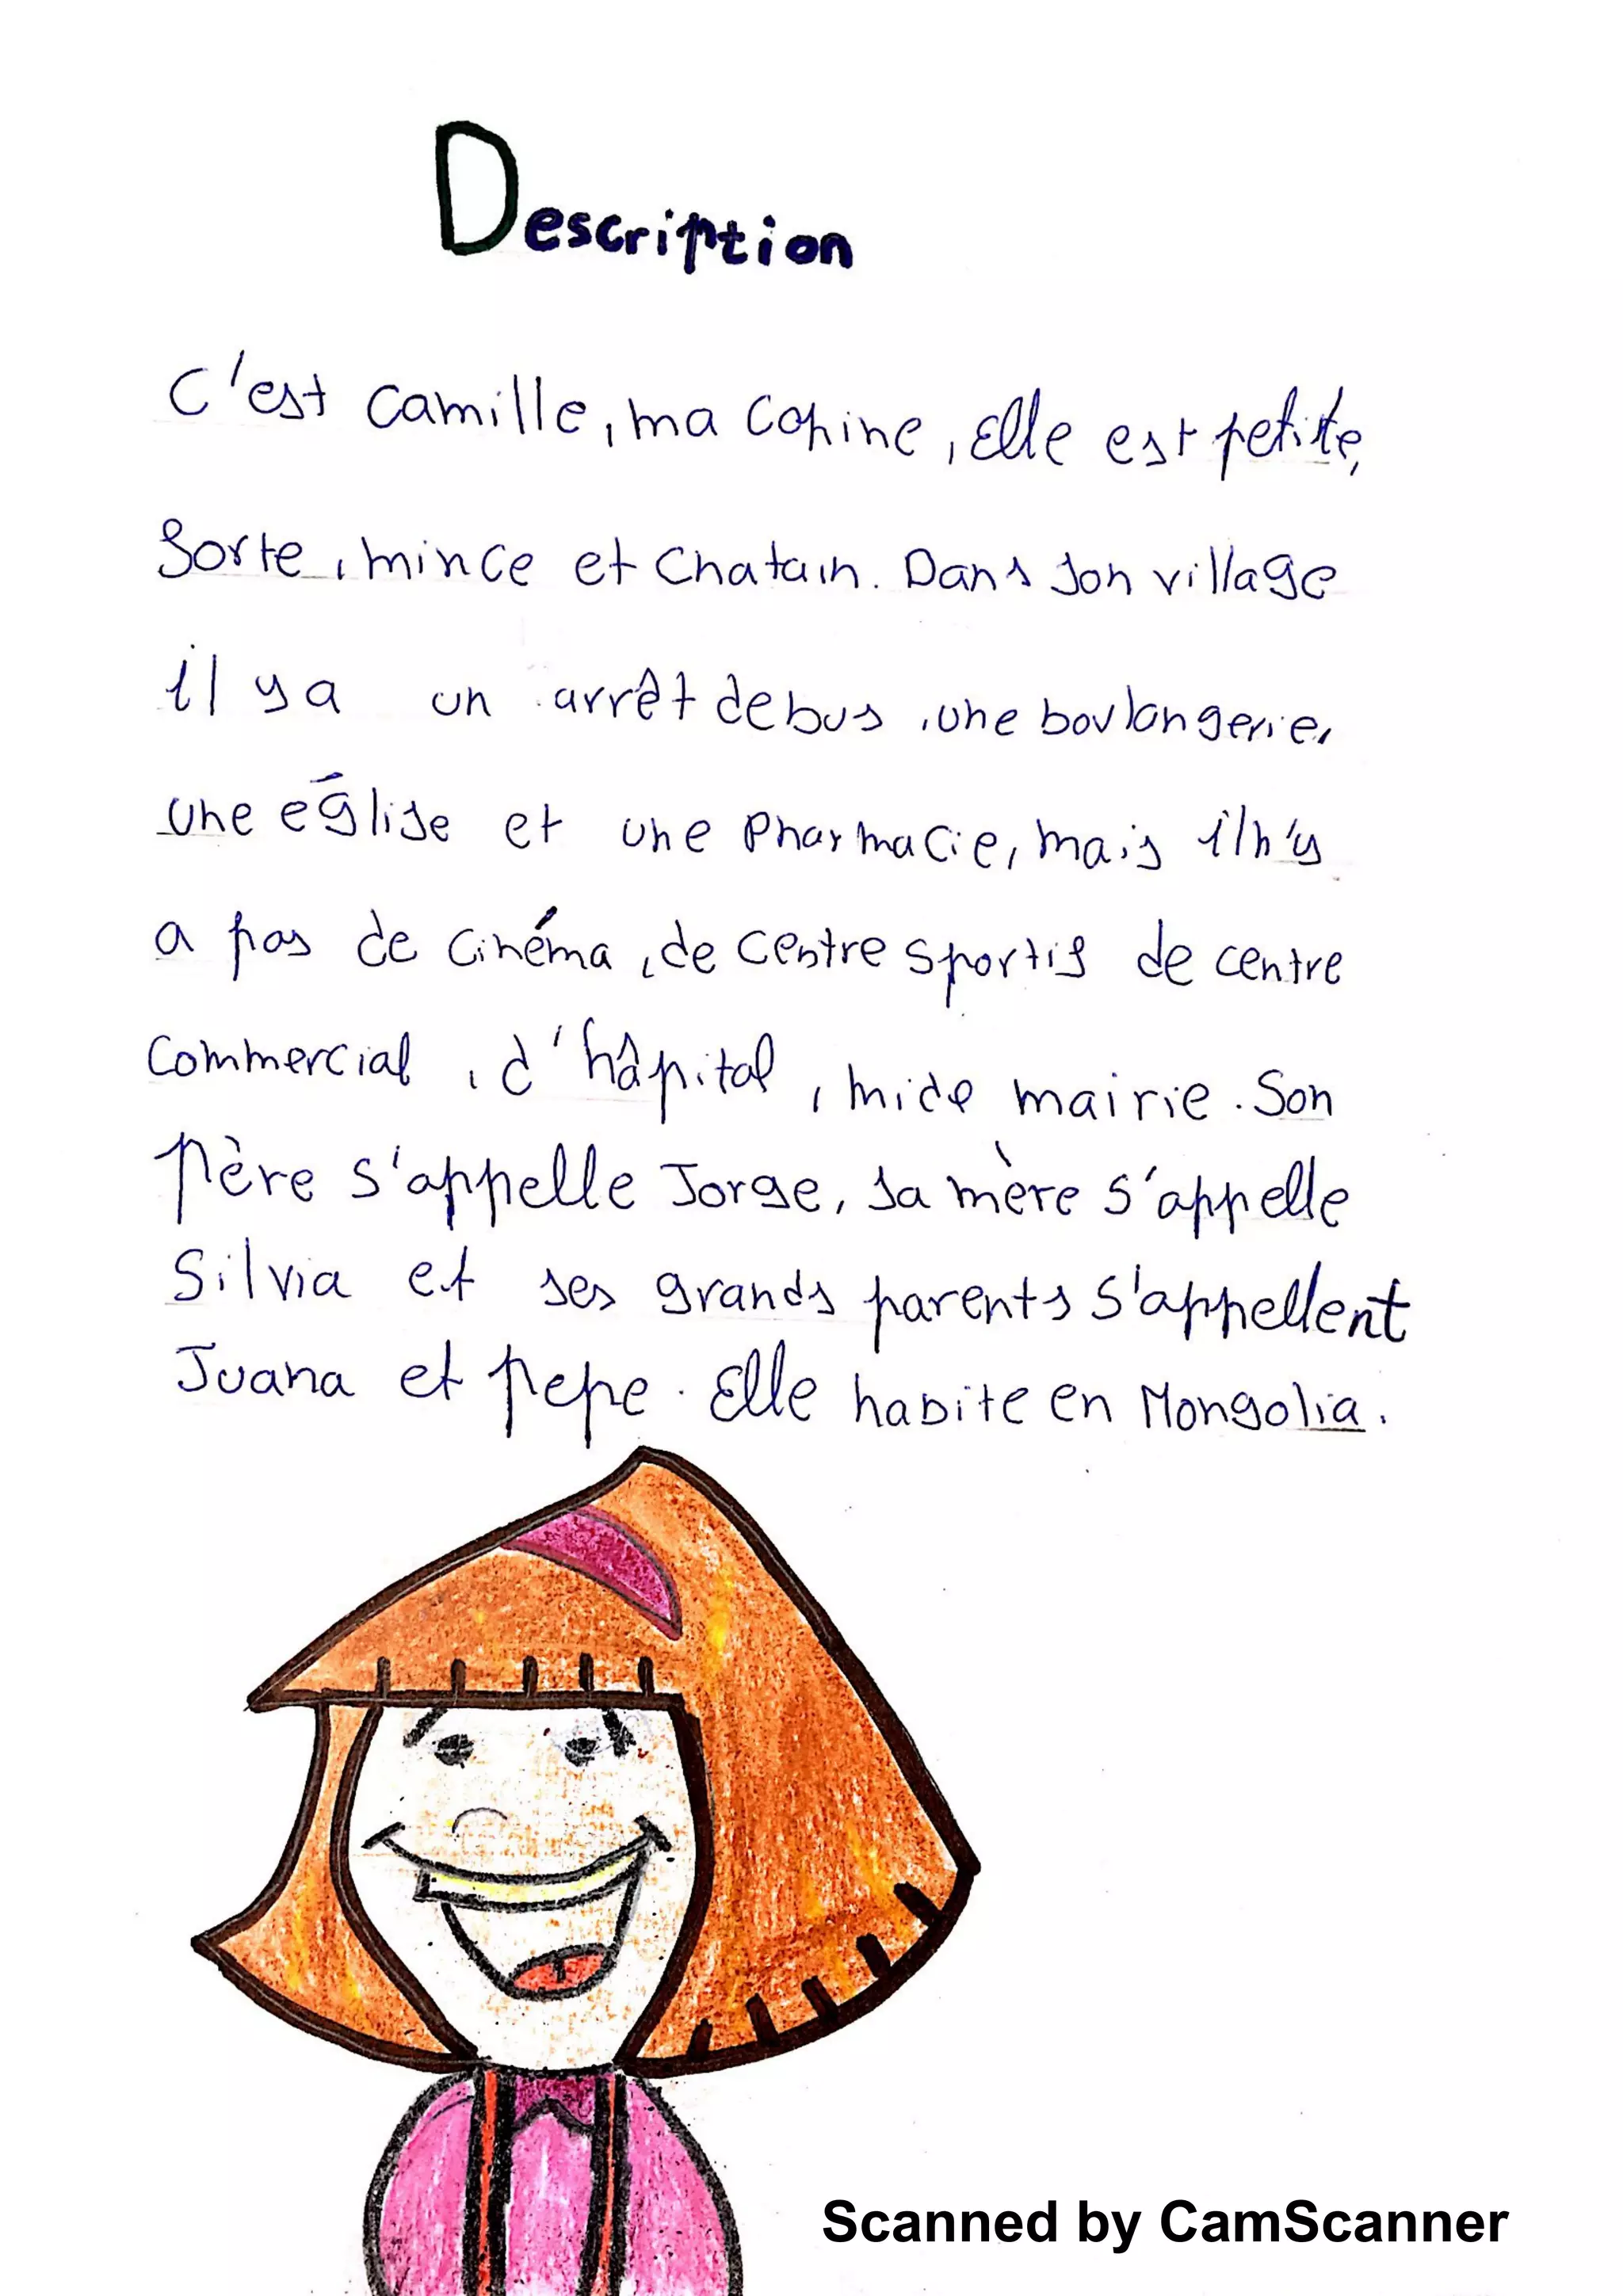 Description
C'est camille, ma copine, Elle est petite,
forte, mince et chatain. Dans son village
il y a un arrêt de bus, une boulangerie,
une église et une Pharmacie, mais il n'y
a pas de cinéma, de centre sportif de centre
commercial, d'hâpital, ni de mairie. Son
père s'appelle Jorge, sa mère s'appelle
Silvia et ses grands parents s'appellent
Juana et pepe. Elle habite en Mongolia.
Scanned by CamScanner